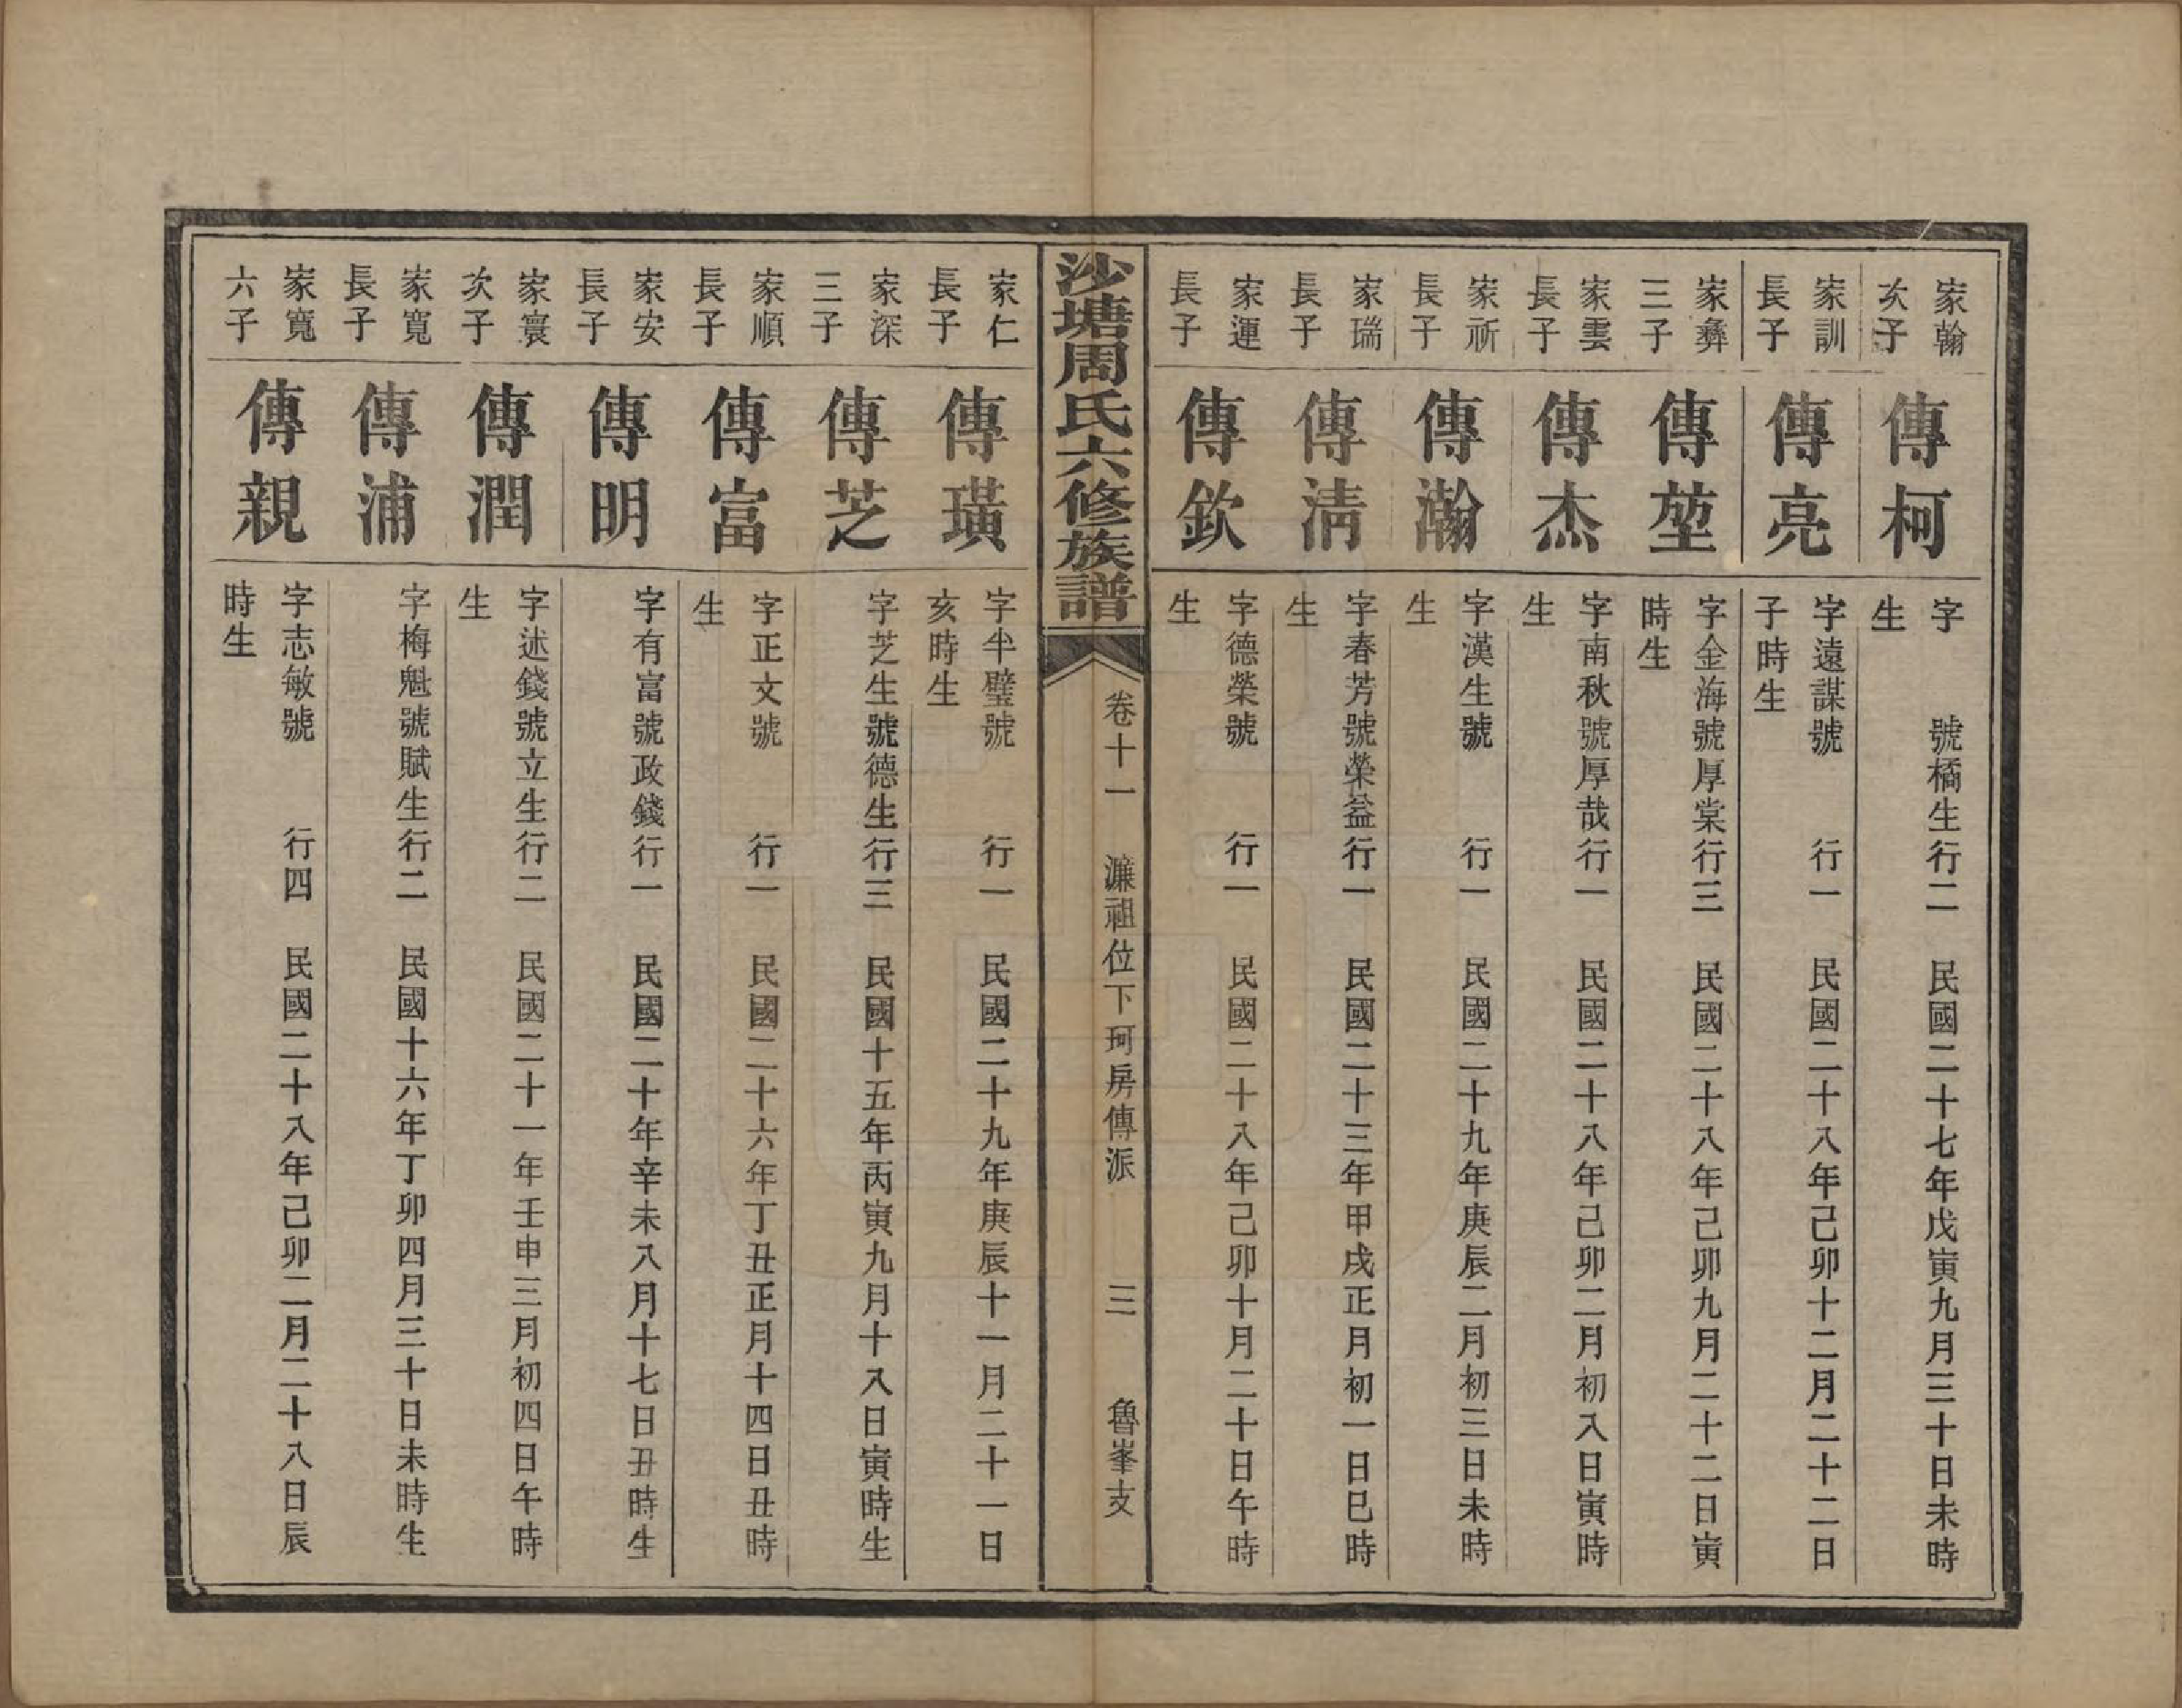 家翰
次子
傳柯
字　　號橘生行二　民國二十七年戊寅九月三十日未時
生
家訓
長子
傳亮
字遠謀號　　行一　民國二十八年己卯十二月二十二日
子時生
家彝
三子
傳堃
字金海號厚棠行三　民國二十八年己卯九月二十二日寅
時生
家雲
長子
傳杰
字南秋號厚哉行一　民國二十八年己卯二月初八日寅時
生
家祈
長子
傳瀚
字漢生號　　行一　民國二十九年庚辰二月初三日未時
生
家瑞
長子
傳清
字春芳號榮益行一　民國二十三年甲戌正月初一日巳時
生
家運
長子
傳欽
字德榮號　　行一　民國二十八年己卯十月二十日午時
生
沙塘周氏六修族譜
卷十一　濂祖位下珂房傳派　　三　　魯峯支
家仁
長子
傳璜
字半璧號　　行一　民國二十九年庚辰十一月二十一日
亥時生
家深
三子
傳芝
字芝生號德生行三　民國十五年丙寅九月十八日寅時生
家順
長子
傳富
字正文號　　行一　民國二十六年丁丑正月十四日丑時
生
家安
長子
傳明
字有富號政錢行一　民國二十年辛未八月十七日丑時生
家寰
次子
傳潤
字述錢號立生行二　民國二十一年壬申三月初四日午時
生
家寬
長子
傳浦
字梅魁號賦生行二　民國十六年丁卯四月三十日未時生
家寬
六子
傳親
字志敏號　　行四　民國二十八年己卯二月二十八日辰
時生